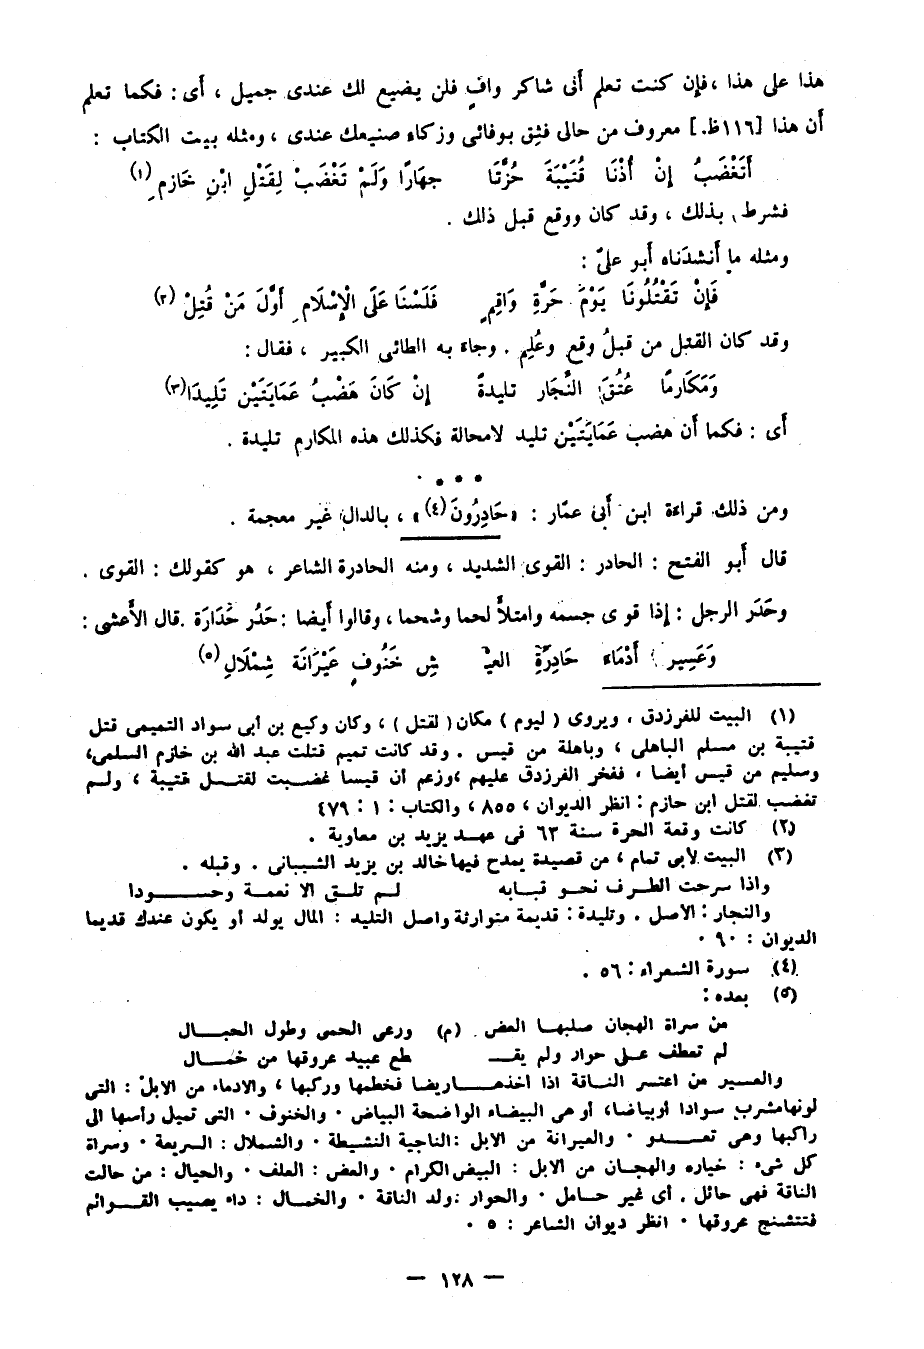 هذا على هذا ، فإن كنت تعلم أنى شاكر وافٍ فلن يضيع لك عندى جميل ، أى : فكما تعلم
أن هذا [١١٦ظ.] معروف من حالى فثق بوفائى وزكاء صنيعك عندى ، ومثله بيت الكتاب :
أَتَغْضَبُ إِنْ أُذْنَا قُتَيْبَةَ حُزَّتَا جهارًا وَلَمْ تَغْضَبْ لِقَتْلِ ابْنِ خَازم ِ(١)
فشرط بذلك ، وقد كان ووقع قبل ذلك .
ومثله ما أنشدَناه أبو علىّ :
فَإِنْ تَقْتُلُونَا يَوْمَ حَرَّةِ وَاقِمٍ فَلَسْنَا عَلَى الْإِسْلَام ِ أَوَّلَ مَنْ قُتِلْ (٢)
وقد كان القتل من قبلُ وقع وعُلِم . وجاء به الطائى الكبير ، فقال :
وَمَكَارمًا عُتُقَ النِّجَار تليدةً إِنْ كَانَ هَضْبُ عَمَايَتَيْن تَلِيدَا(٣)
أى : فكما أن هضب عَمَايَتَيْن تليد لامحالة فكذلك هذه المكارم تليدة .
• • •
ومن ذلك قراءة ابن أبى عمّار : «حَادِرُونَ(٤)» ، بالدال غير معجمة .
قال أبو الفتح : الحادر : القوى الشديد ، ومنه الحادرة الشاعر ، هو كقولك : القوى .
وحَدَر الرجل : إذا قوى جسمه وامتلأ لحما وشحما ، وقالوا أيضا : حَدُر حَدَارَة . قال الأعشى :
وَعَسِير أَدْمَاء حَادِرَةِ العيْـ ـن خَنُوفٍ عَيْرَانَة شِمْلَالِ(٥)
(١) البيت للفرزدق ، ويروى ( ليوم ) مكان ( لقتل ) ، وكان وكيع بن أبى سواد التميمى قتل
قتيبة بن مسلم الباهلى ، وباهلة من قيس . وقد كانت تميم قتلت عبد الله بن خازم السلمى،
وسليم من قيس أيضا ، ففخر الفرزدق عليهم ،وزعم أن قيسا غضبت لقتــل قتيبة ، ولــم
تغضب لقتل ابن حازم : انظر الديوان ، ٨٥٥ ، والكتاب : ١ : ٤٧٩
(٢) كانت وقعة الحرة سنة ٦٣ فى عهــد يزيد بن معاوية .
(٣) البيت لأبى تمام ، من قصيدة يمدح فيها خالد بن يزيد الشيبانى . وقبله .
واذا سرحت الطــرف نحــو قبــابه لــم تلــق الا نعمــة وحســــودا
والنجار : الأصل . وتليدة : قديمة متوارثة واصل التليد : المال يولد أو يكون عندك قديما
الديوان : ٩٠ .
(٤) سورة الشعراء : ٥٦ .
(٥) بعده :
من سراة الهجان صلبهــا العض (م) ورعى الحمى وطول الحيــال
لم تعطف علــى حوار ولم يقــ طع عبيد عروقها من خمــال
والعسير من اعتسر النــاقة اذا اخذهــا ريضا فخطمها وركبها ، والأدماء من الابل : التى
لونها مشرب سوادا أو بياضا، أو هى البيضاء الواضحة البياض . والخنوف . التى تميل رأسها الى
راكبها وهى تعــدو . والعيرانة من الابل :الناجية النشيطة . والشملال : السريعة . وسراة
كل شىء : خياره والهجان من الابل : البيض الكرام . والعض : العلف . والحيال : من حالت
الناقة فهى حائل ، أى غير حــامل . والحوار :ولد الناقة . والخمــال : داء يصيب القــوائم
فتتشنج عروقها . انظر ديوان الشاعر : ٥ .
— ١٢٨ —